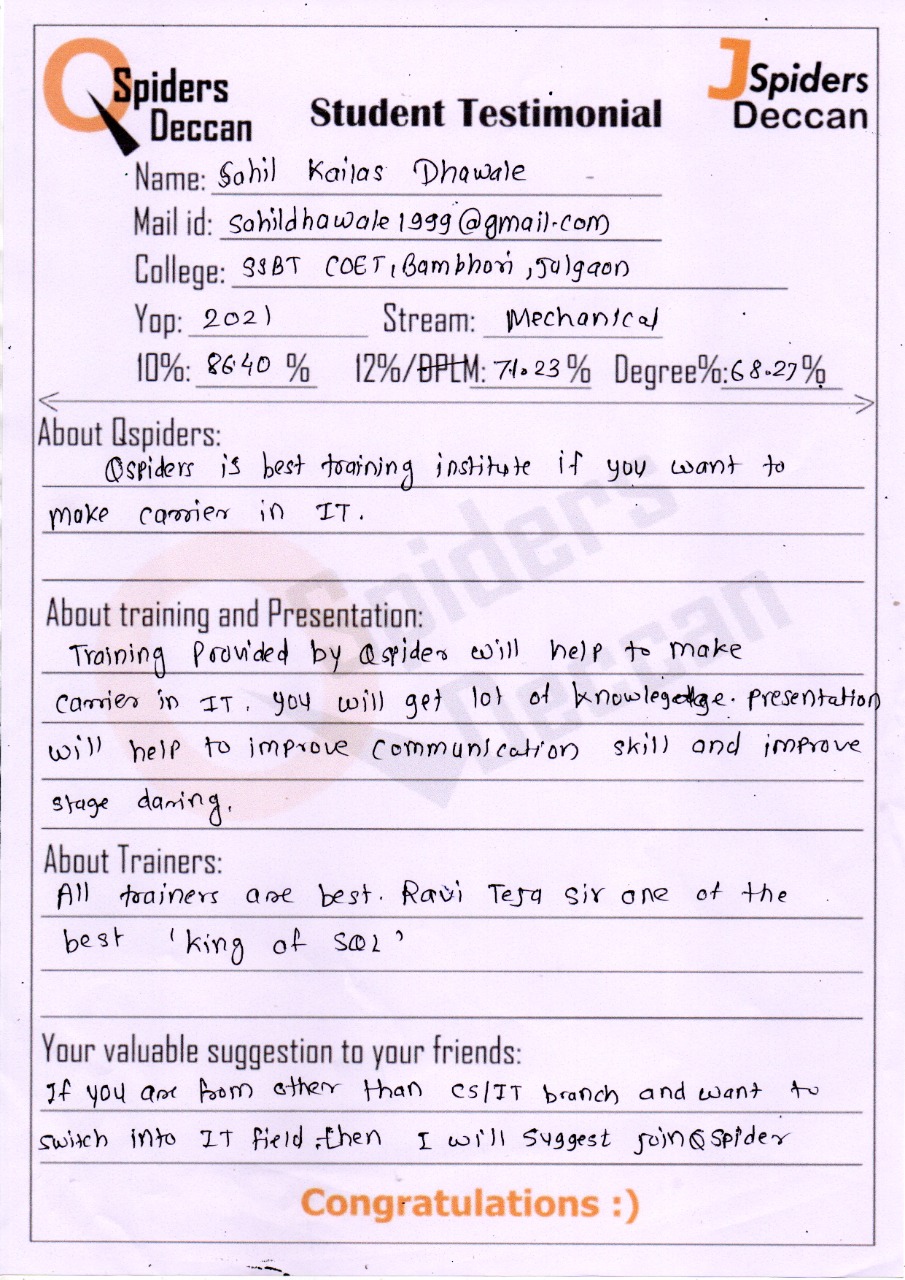 QSpiders
Deccan
Student Testimonial
JSpiders
Deccan
Name: Sahil Kailas Dhawale
Mail id: sahildhawale1999@gmail.com
College: SSBT COET, Bambhori, Jalgaon
Yop: 2021 Stream: Mechanical
10%: 86.40 % 12%/DPLM: 71.23 % Degree%: 68.27%
About Qspiders:
Qspiders is best training institute if you want to
make carrier in IT.
About training and Presentation:
Training Provided by Qspider will help to make
carrier in IT. you will get lot of knowlegedge. Presentation
will help to improve communication skill and improve
stage daring.
About Trainers:
All trainers are best. Ravi Teja sir one of the
best 'king of SQL'
Your valuable suggestion to your friends:
If you are from other than CS/IT branch and want to
switch into IT field, then I will suggest join QSpider
Congratulations :)
QSpiders
Deccan